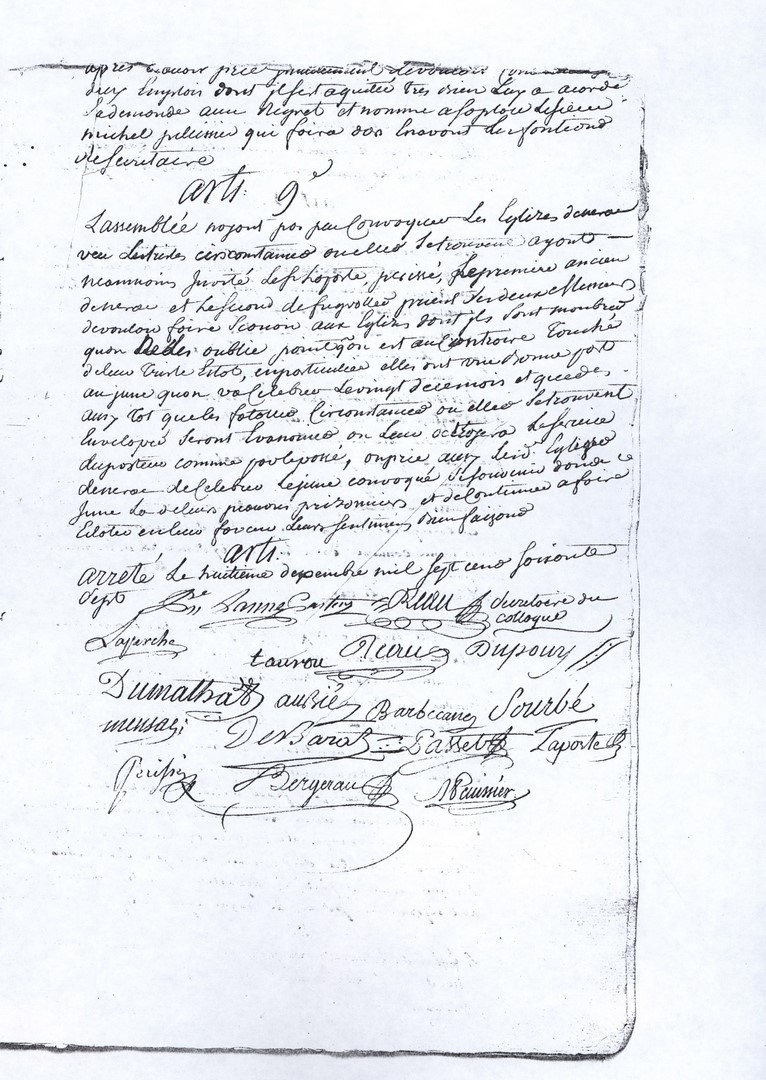 après l'avoir prié
deux Employs dont il s'est aquitté très bien Luy a acordé
Sa demande aux Regret et nomme a sa place Le sieur
michel pellissier qui faira dors Enavant Les fontions
de Secretaire
arti: 9e
Lassemblée nayant pas peu Convoquer Les Eglizes de nerac
veu Les tristes circonstances ou elles Se trouvent ayant
neanmoins Invité Les srs laporte, peirisse, Le premier ancien
de nerac et Le Second de feugrolles prient Ses deux Messieurs
de vouloir faire Scavoir aux Eglizes dont ils Sont membres
quon ne Les oublie point quon est au Contraire Touché
de leur triste Etat, en particulier elles ont une bonne part
au June quon va Celebrer Le vingt de ce mois et que des
aussy Tot que les fatales Circonstances ou elles Se trouvent
Envelopés Seront Evanouies on Leur octroyera Le Service
du pasteur comme par le passé, on prie aussy Lesd. Eglizes
de nerac de Celebrer Le june convoqué, Se Souvenir dans ce
June La de leurs pauvres prizonniers et de Continuer a faire
Eclater en leur faveur Leurs Sentimens bien faizans
arti.
arreté Le huitieme decembre mil Sept cens Soixante
Sept
Secretaire du
colloque
Laparche
taurou
Dupouy
Dumalhat aussié Barbecane Sourbé
Laporte
Bergerau